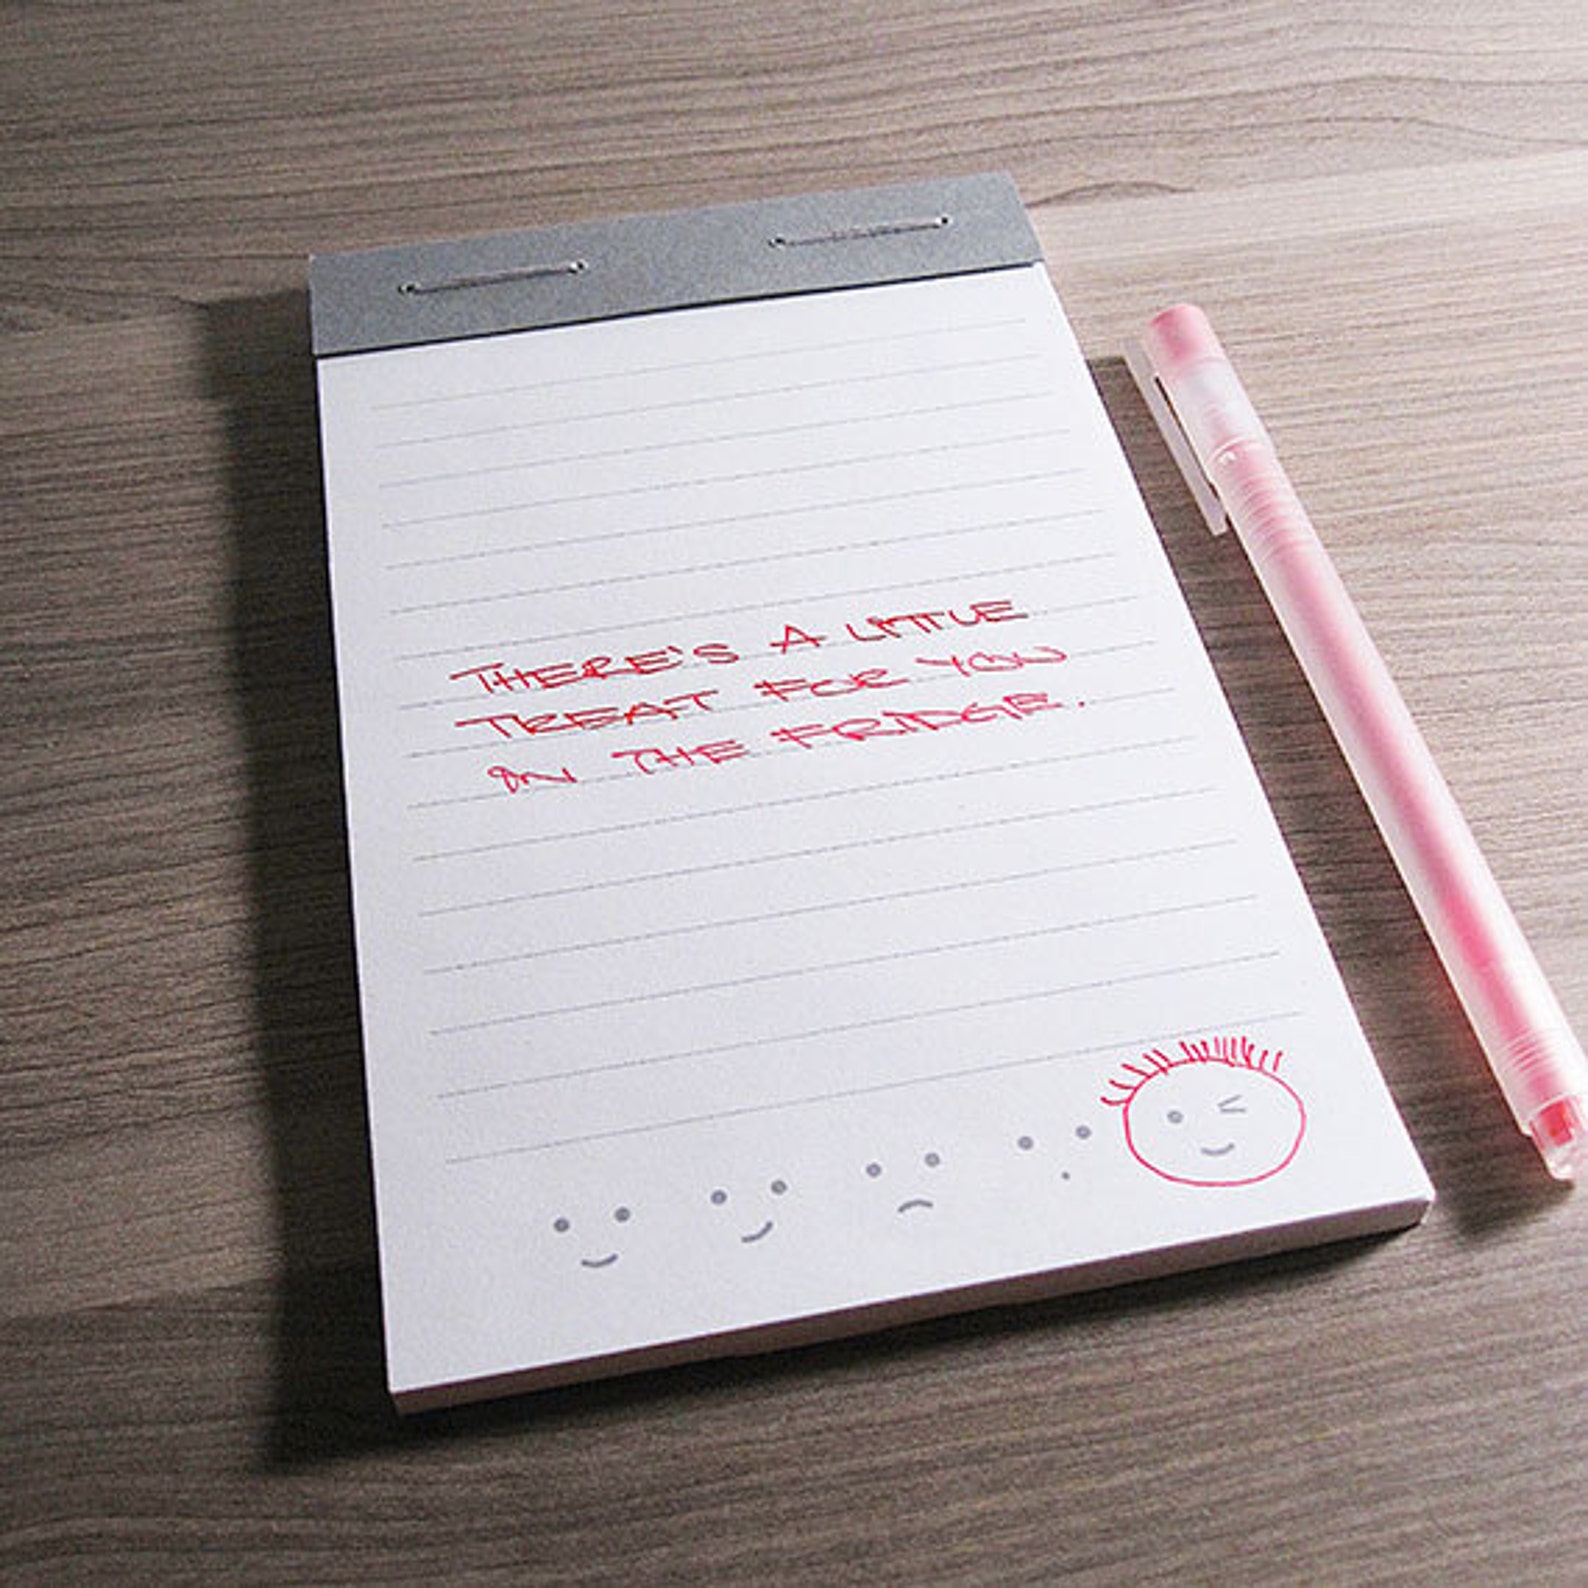 THERE'S A LITTLE
TREAT FOR YOU
IN THE FRIDGE.